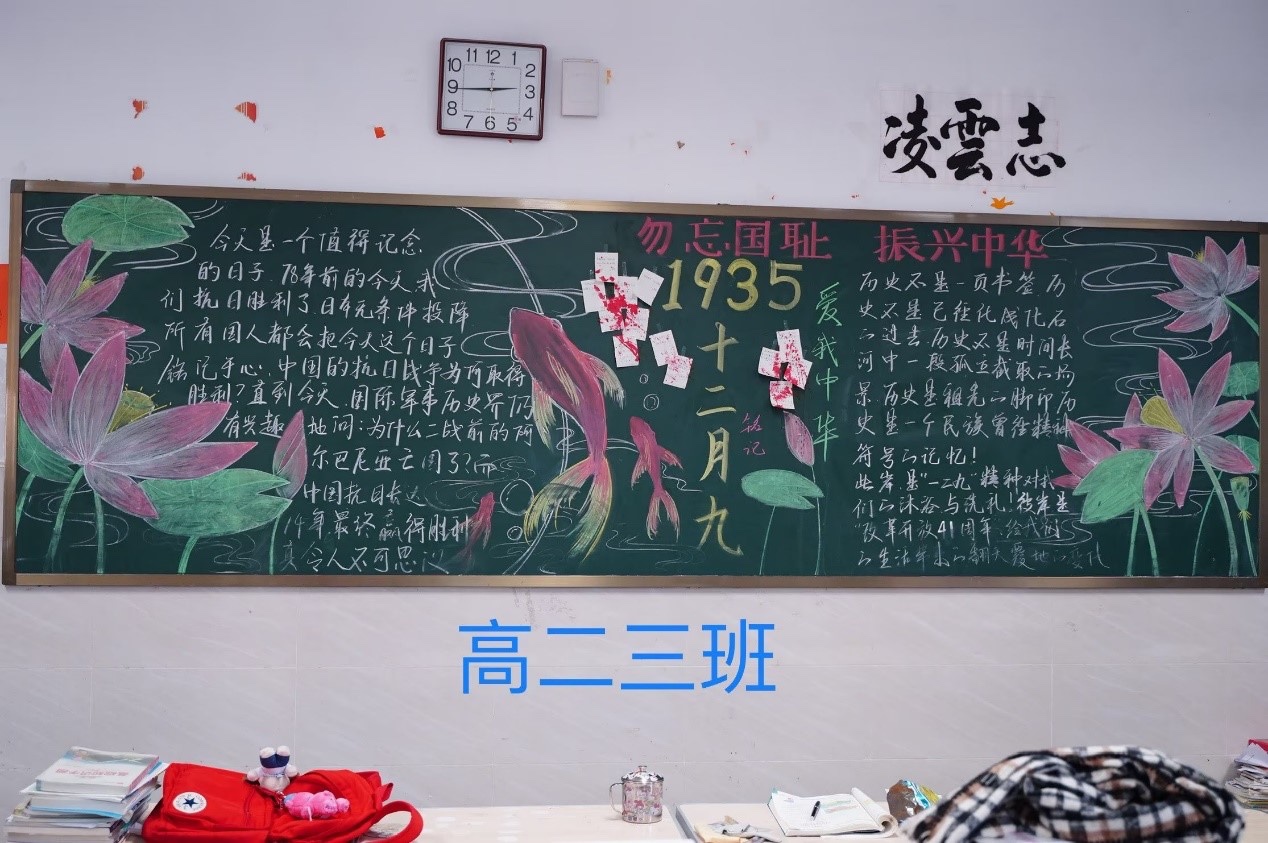 凌雲志
勿忘国耻 振兴中华
1935
十二月九
爱我中华
铭记
今天是一个值得记念
的日子.78年前的今天,我
们抗日胜利了,日本无条件投降
所有国人都会把今天这个日子
铭记于心,中国的抗日战争为何取得
胜利?直到今天,国际军事历史界仍
有兴趣地问:为什么二战前的阿
尔巴尼亚亡国了?而
中国抗日长达
14年,最终赢得胜利
真令人不可思议
历史不是一页书签,历
史不是已经化成化石
的过去,历史不是时间长
河中一段孤立截取的场
景.历史是祖先的脚印,历
史是一个民族曾经精神
符号的记忆!
此岸是"一二九"精神对我
们的沐浴与洗礼!彼岸是
"改革开放41周年,给我们
的生活带来的翻天覆地的变化
高二三班
11 12 1
10 2
9 3
8 4
7 6 5